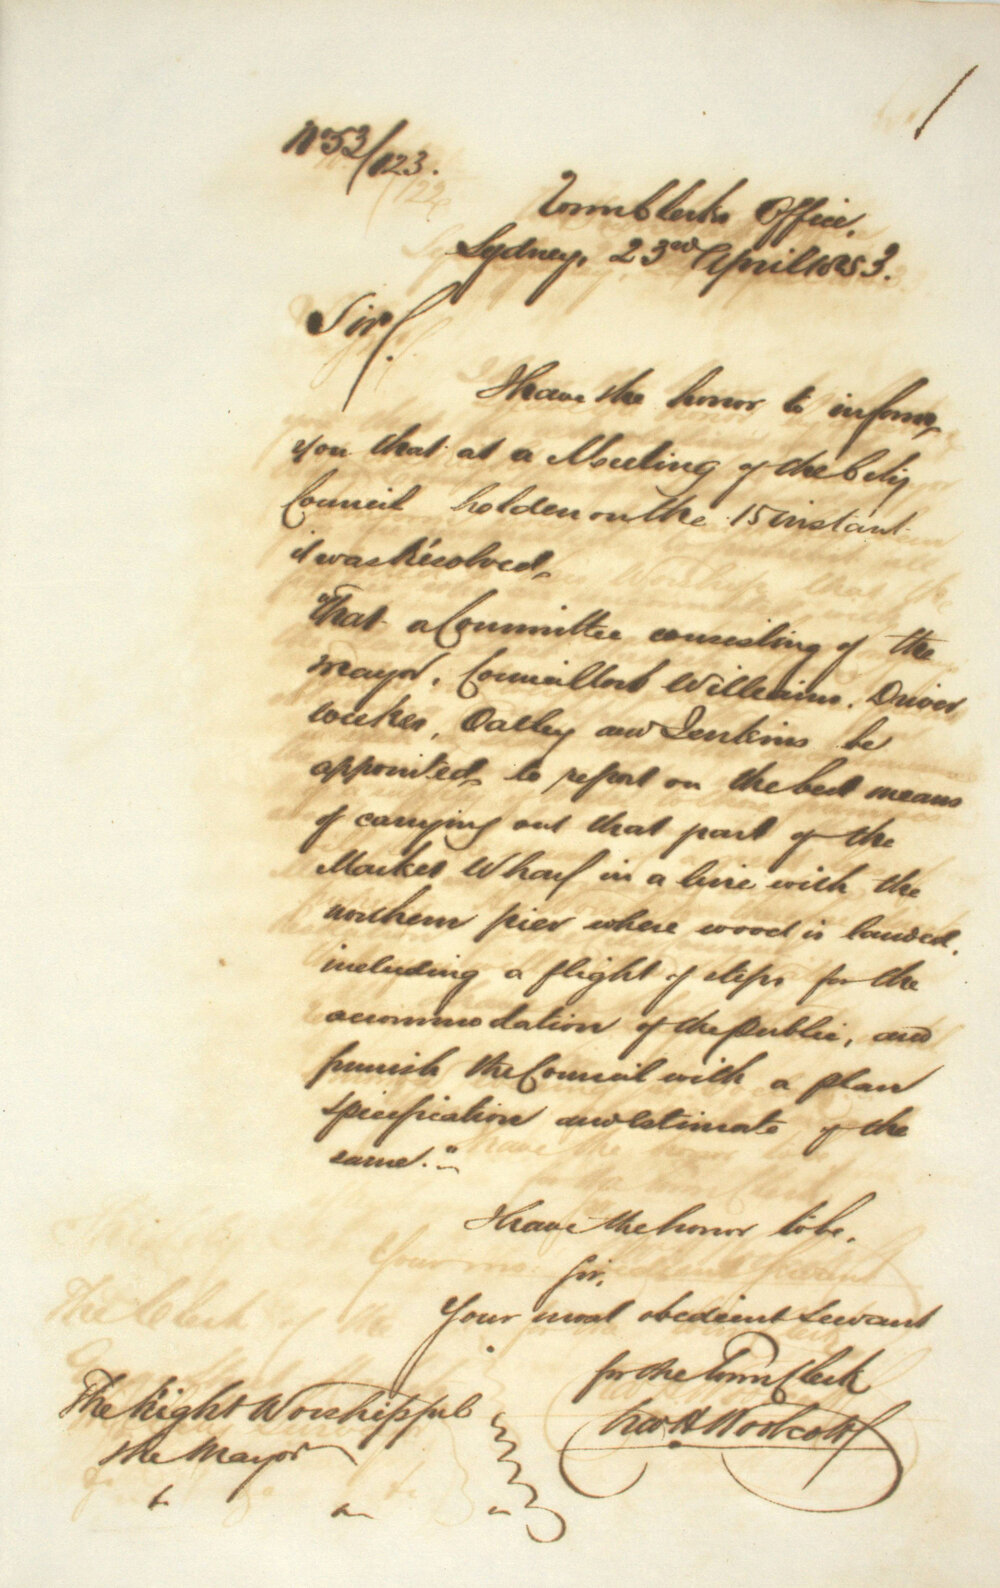 No 53/123.
Town Clerks Office,
Sydney, 23rd April 1853.
Sir,
I have the honor to inform
you that at a Meeting of the City
Council holden on the 15 instant
it was Resolved,
"That a Committee consisting of the
Mayor, Councillors Williams, Driver
Oatley and Jenkins be
appointed to report on the best means
of carrying out that part of the
Market Wharf in a line with the
northern pier where wood is landed,
including a flight of steps for the
accommodation of the public, and
furnish the Council with a plan
specification and Estimate of the
same."
I have the honor to be,
Sir,
Your most obedient Servant
for the Town Clerk
Chas H Woolcott
The Right Worshipful
the Mayor